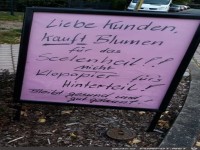 Liebe Kunden,
kauft Blumen
für das
Seelenheil!!
nicht
Klopapier für's
Hinterteil!
Bleibt gesund und
gut gelaunt!